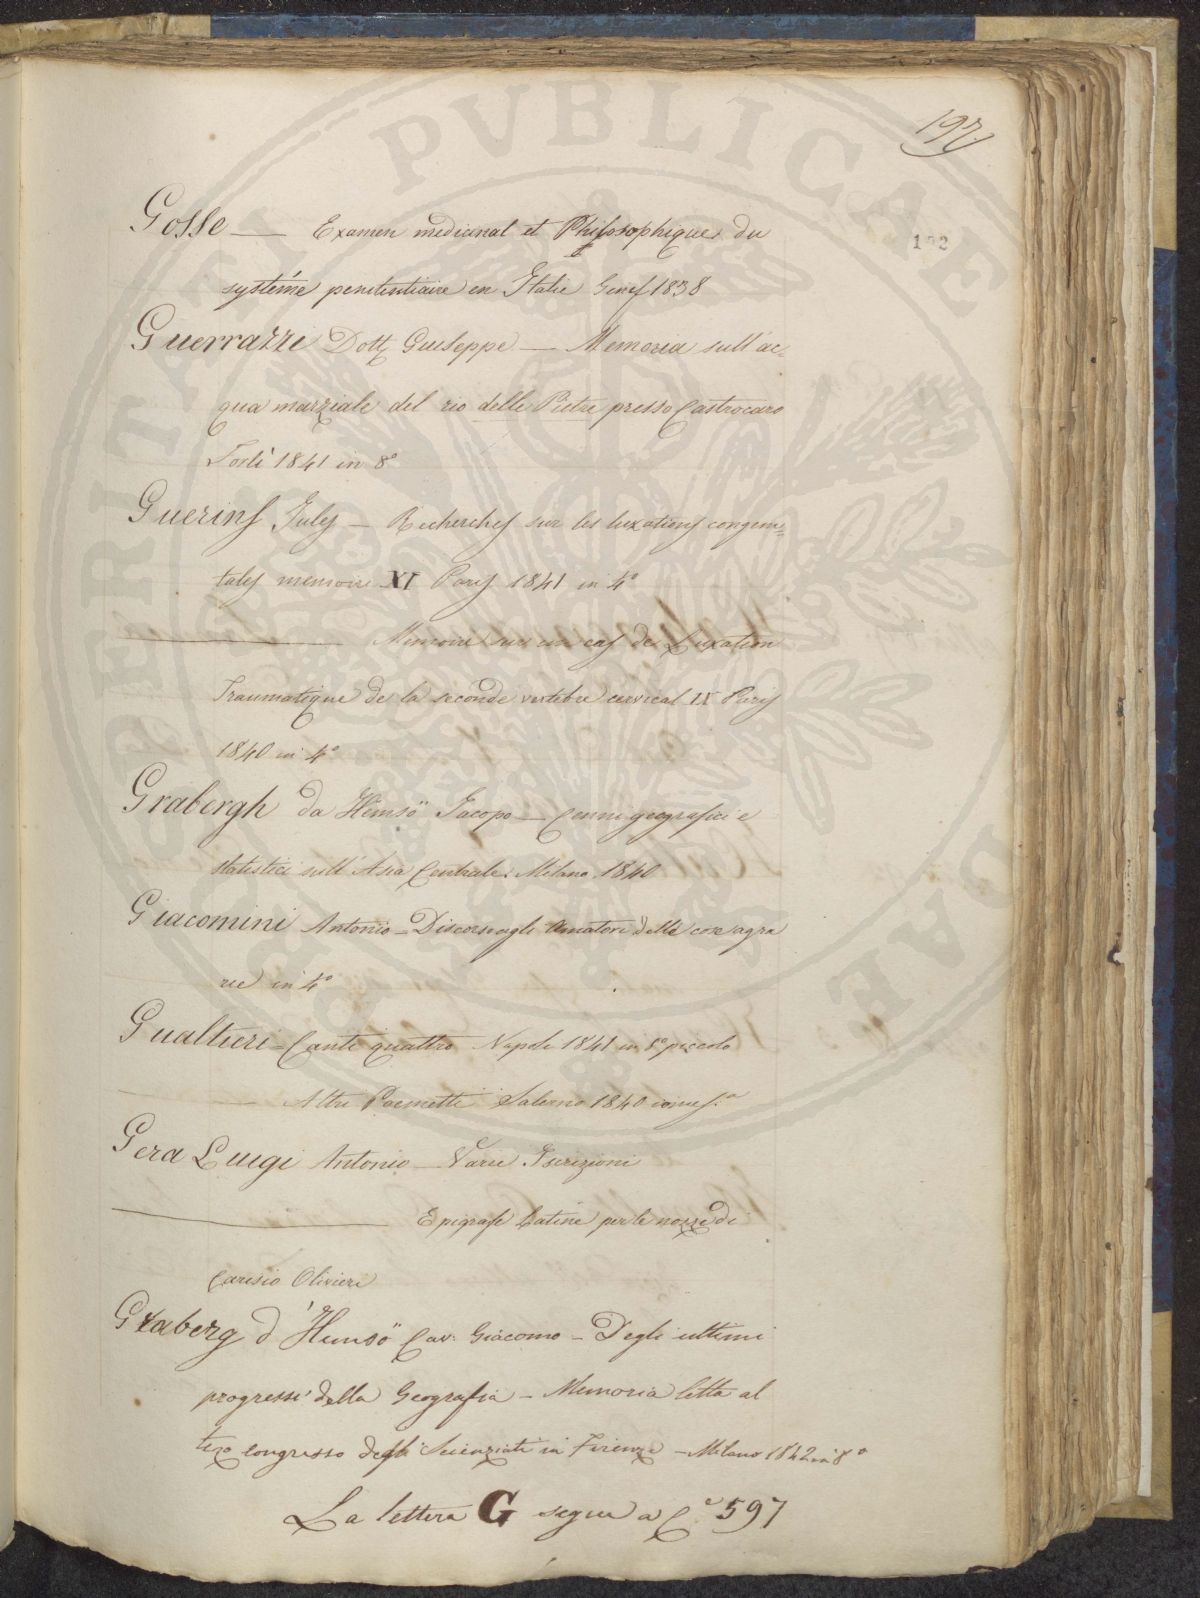 197
192
Gosse — Examen medicinal et Philosophique du
systéme penitentiaire en Italie Genef 1838
Guerrazzi Dott. Guiseppe — Memoria sull'ac-
qua marziale del rio delle Pietre presso Castrocaro
Forlì 1841 in 8°
Guerins July — Recherches sur les luxations congeni=
tales memoire XI Paris 1841 in 4°
— Memoire sur un cas de Luxation
Traumatique de la seconde vertebre cervical IX Paris
1840 in 4°
Grabergh da Hemsö Jacopo — Cenni geografici e
statistici sull'Asia Centrale. Milano 1840
Giacomini Antonio — Discorso agli Amatori delle cose agra
rie in 4°
Gualtieri — Canti quattro Napoli 1841 in 8° piccolo
— Altri Poemetti Salerno 1840
Gera Luigi Antonio — Varie Iscrizioni
— Epigrafe Latine per le nozze di
Carisio Olivieri
Graberg d'Hemsö Cav. Giacomo — Degli ultimi
progressi della Geografia — Memoria letta al
terzo congresso degli Scienziati in Firenze — Milano 1842 in 8°
La lettera G segue a C.e 597
PROSPERITATI PVBLICAE AVGENDAE